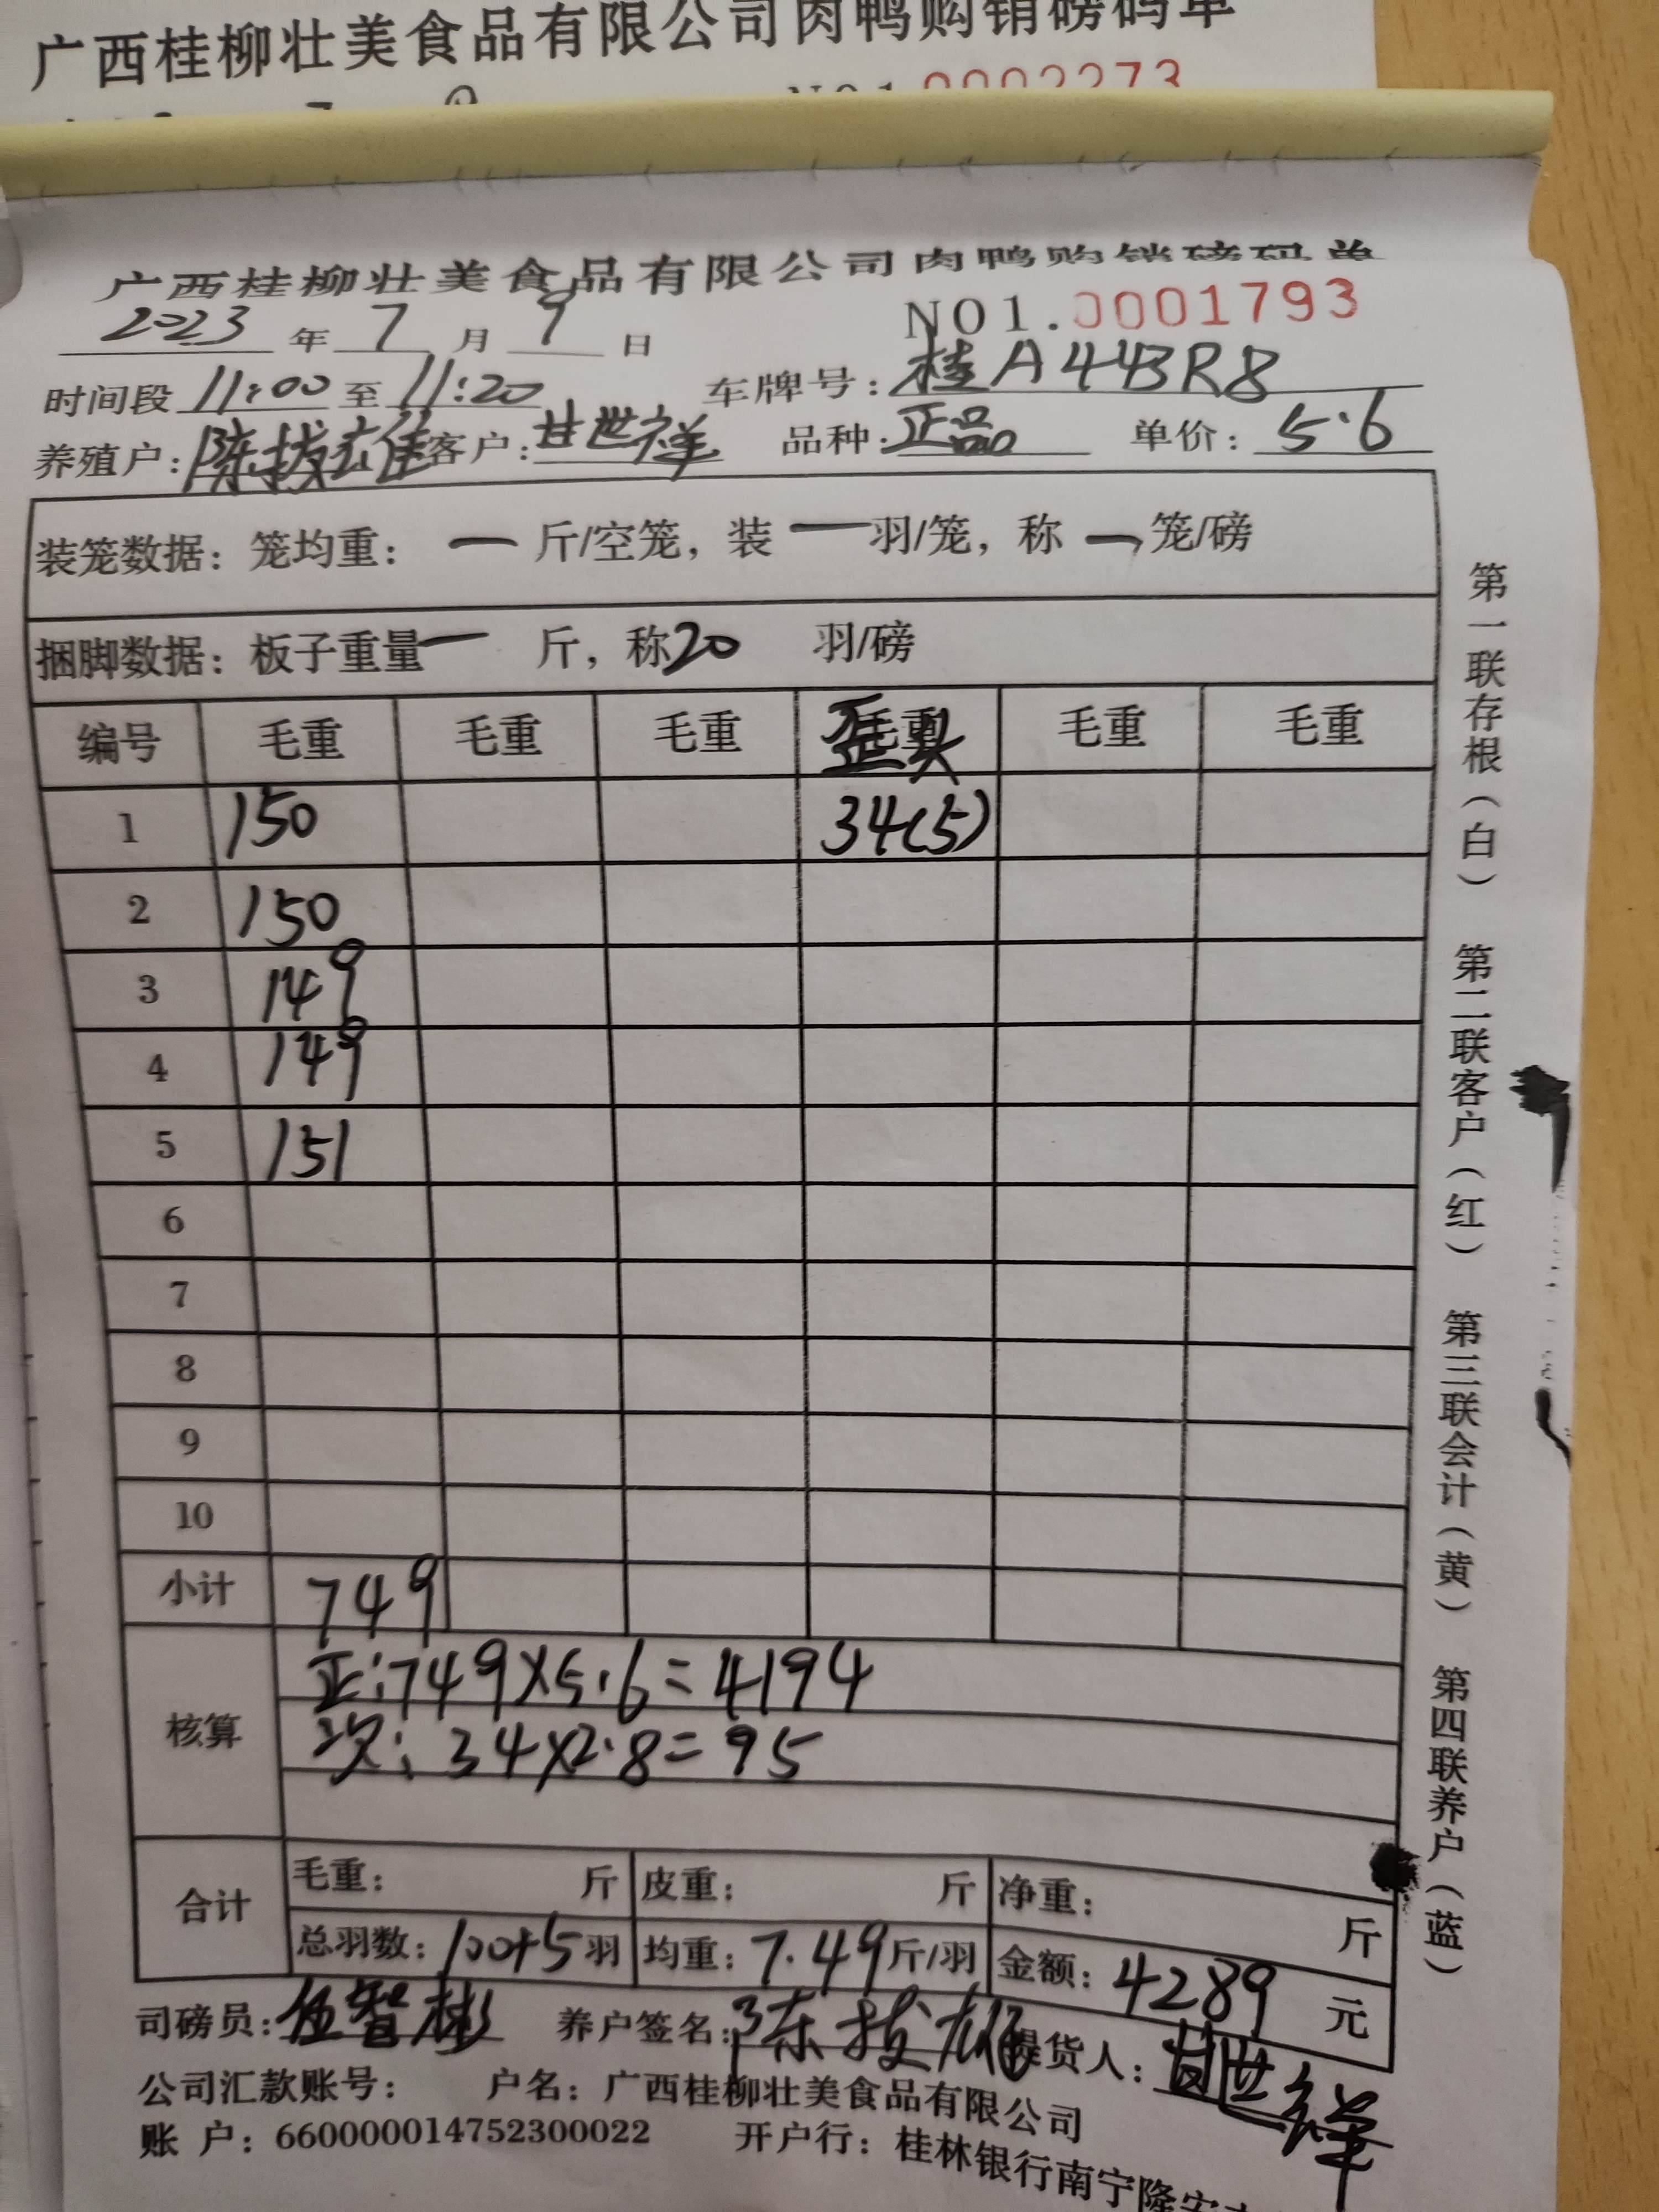 广西桂柳壮美食品有限公司肉鸭购销磅码单
NO1.0002273
广西桂柳壮美食品有限公司肉鸭购销磅码单
2023 年 7 月 9 日 NO1.0001793
时间段 11:00 至 11:20 车牌号:桂A44BR8
养殖户:陈拔雄 客户:甘世祥 品种:正品 单价:5.6
装笼数据:笼均重: 一 斤/空笼,装 一 羽/笼,称 一 笼/磅
捆脚数据:板子重量 一 斤,称20 羽/磅
编号 毛重 毛重 毛重 歪头 毛重 毛重
1 150 34(5)
2 150
3 149
4 149
5 151
6
7
8
9
10
小计 749
核算 正:749×5.6=4194
次:34×2.8=95
合计 毛重: 斤 皮重: 斤 净重: 斤
总羽数:100+5羽 均重:7.49斤/羽 金额:4289 元
司磅员:伍智彬 养户签名:陈拔雄 提货人:甘世祥
公司汇款账号: 户名:广西桂柳壮美食品有限公司
账 户:660000014752300022 开户行:桂林银行南宁隆安
第一联存根(白) 第二联客户(红) 第三联会计(黄) 第四联养户(蓝)